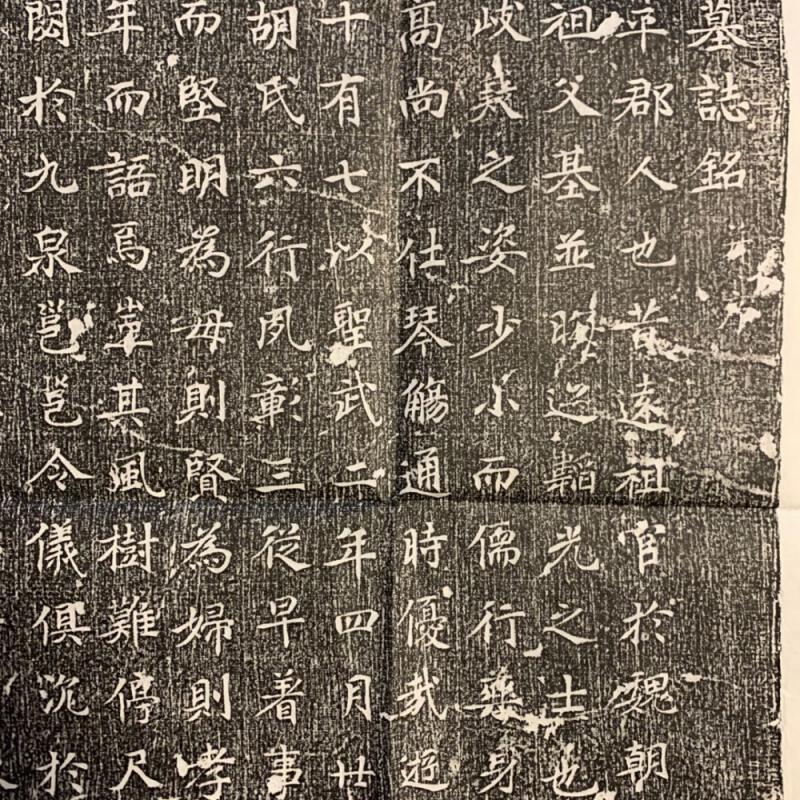 墓誌銘并序
平郡人也昔遠祖官於魏朝
祖父基並晦迹韜光之士也
歧嶷之姿少小而儒行來身
高尚不仕琴觴通時優哉遊
十有七以聖武二年四月廿
胡氏六行夙彰三從早著事
而堅明為母則賢為婦則孝
年而語焉豈其風樹難停尺
閟於九泉邕邕令儀俱沉於